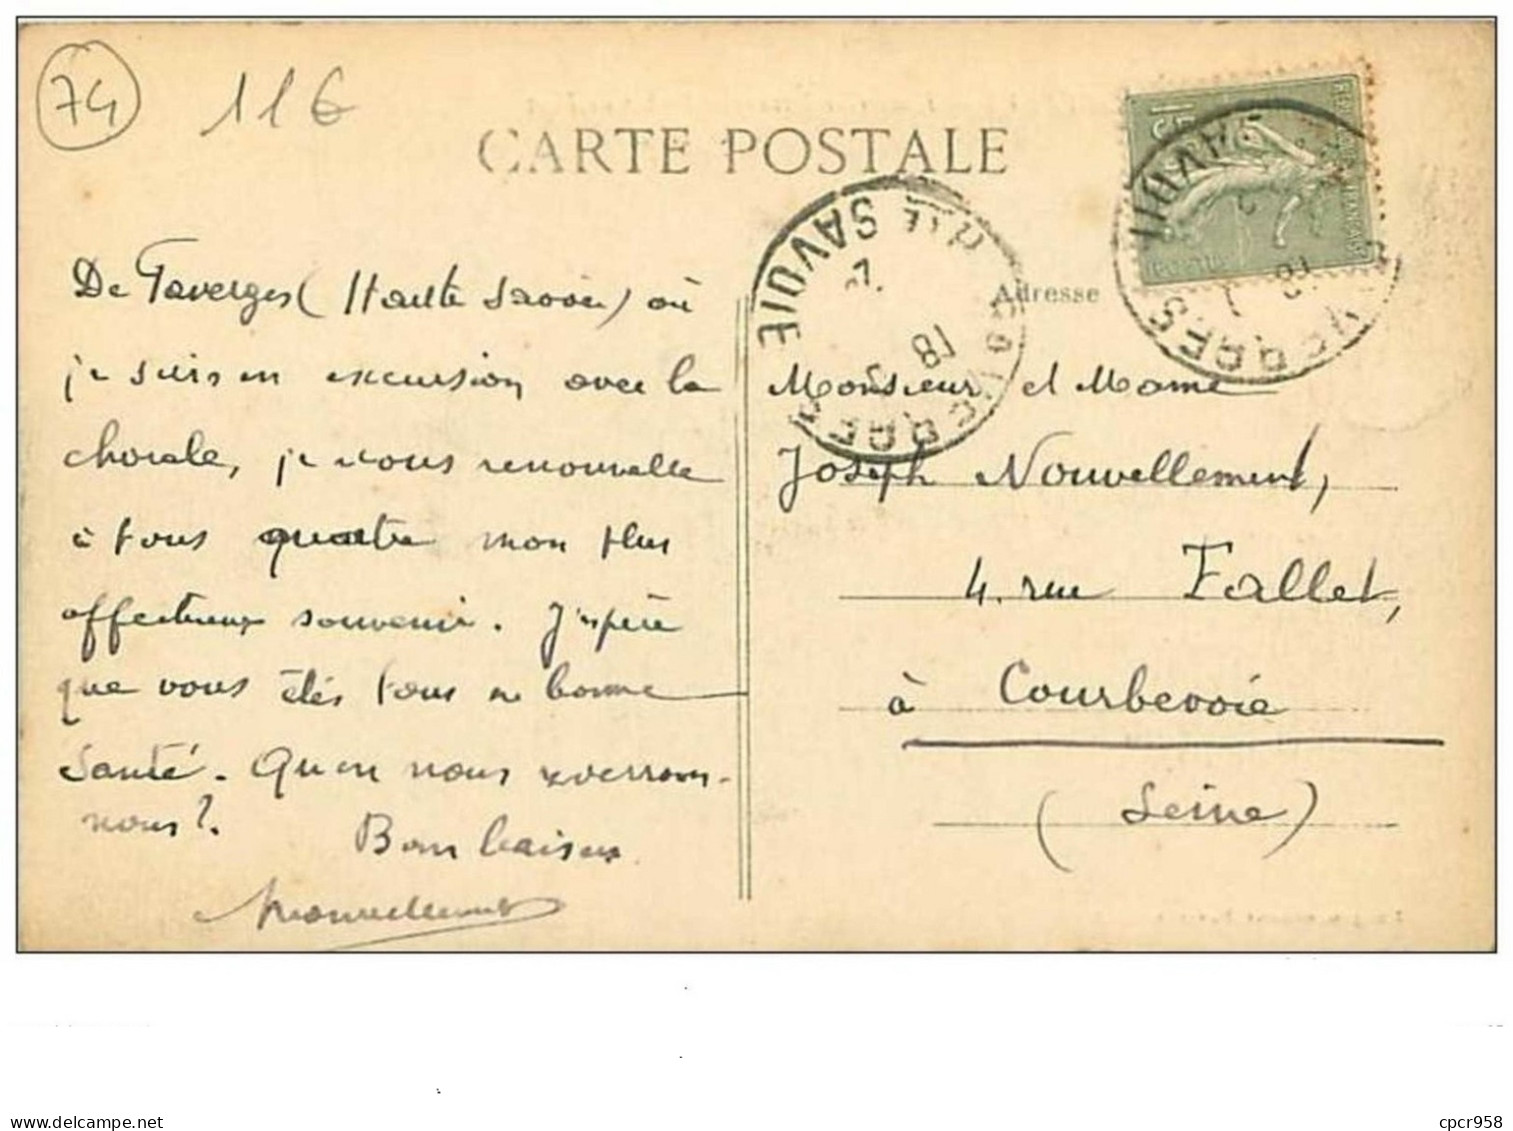 74
11€
CARTE POSTALE
De Faverges (Haute Savoie) où
je suis en excursion avec la
chorale, je vous renouvelle
à tous quatre mon plus
affectueux souvenir. J'espère
que vous êtes tous en bonne
santé. Quen nous reverrons-
nous?
Bons baisers
Nouvellement
15
FAVERGES
18
Hte SAVOIE
Adresse
Monsieur et Mame
Joseph Nouvellement,
4. rue Fallet,
à Courbevoie
(Seine)
www.delcampe.net
cpcr958